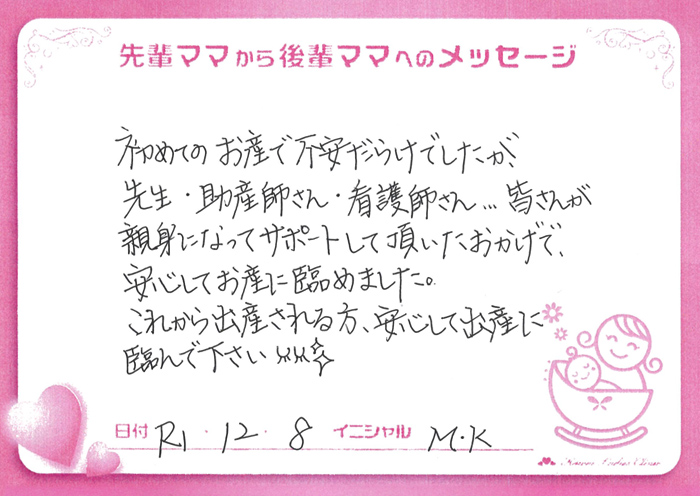 先輩ママから後輩ママへのメッセージ
初めてのお産で不安だらけでしたが、
先生・助産師さん・看護師さん…皆さんが
親身になってサポートして頂いたおかげで、
安心してお産に臨めました。
これから出産される方、安心して出産に
臨んで下さい
日付 R1・12・8 イニシャル M・K